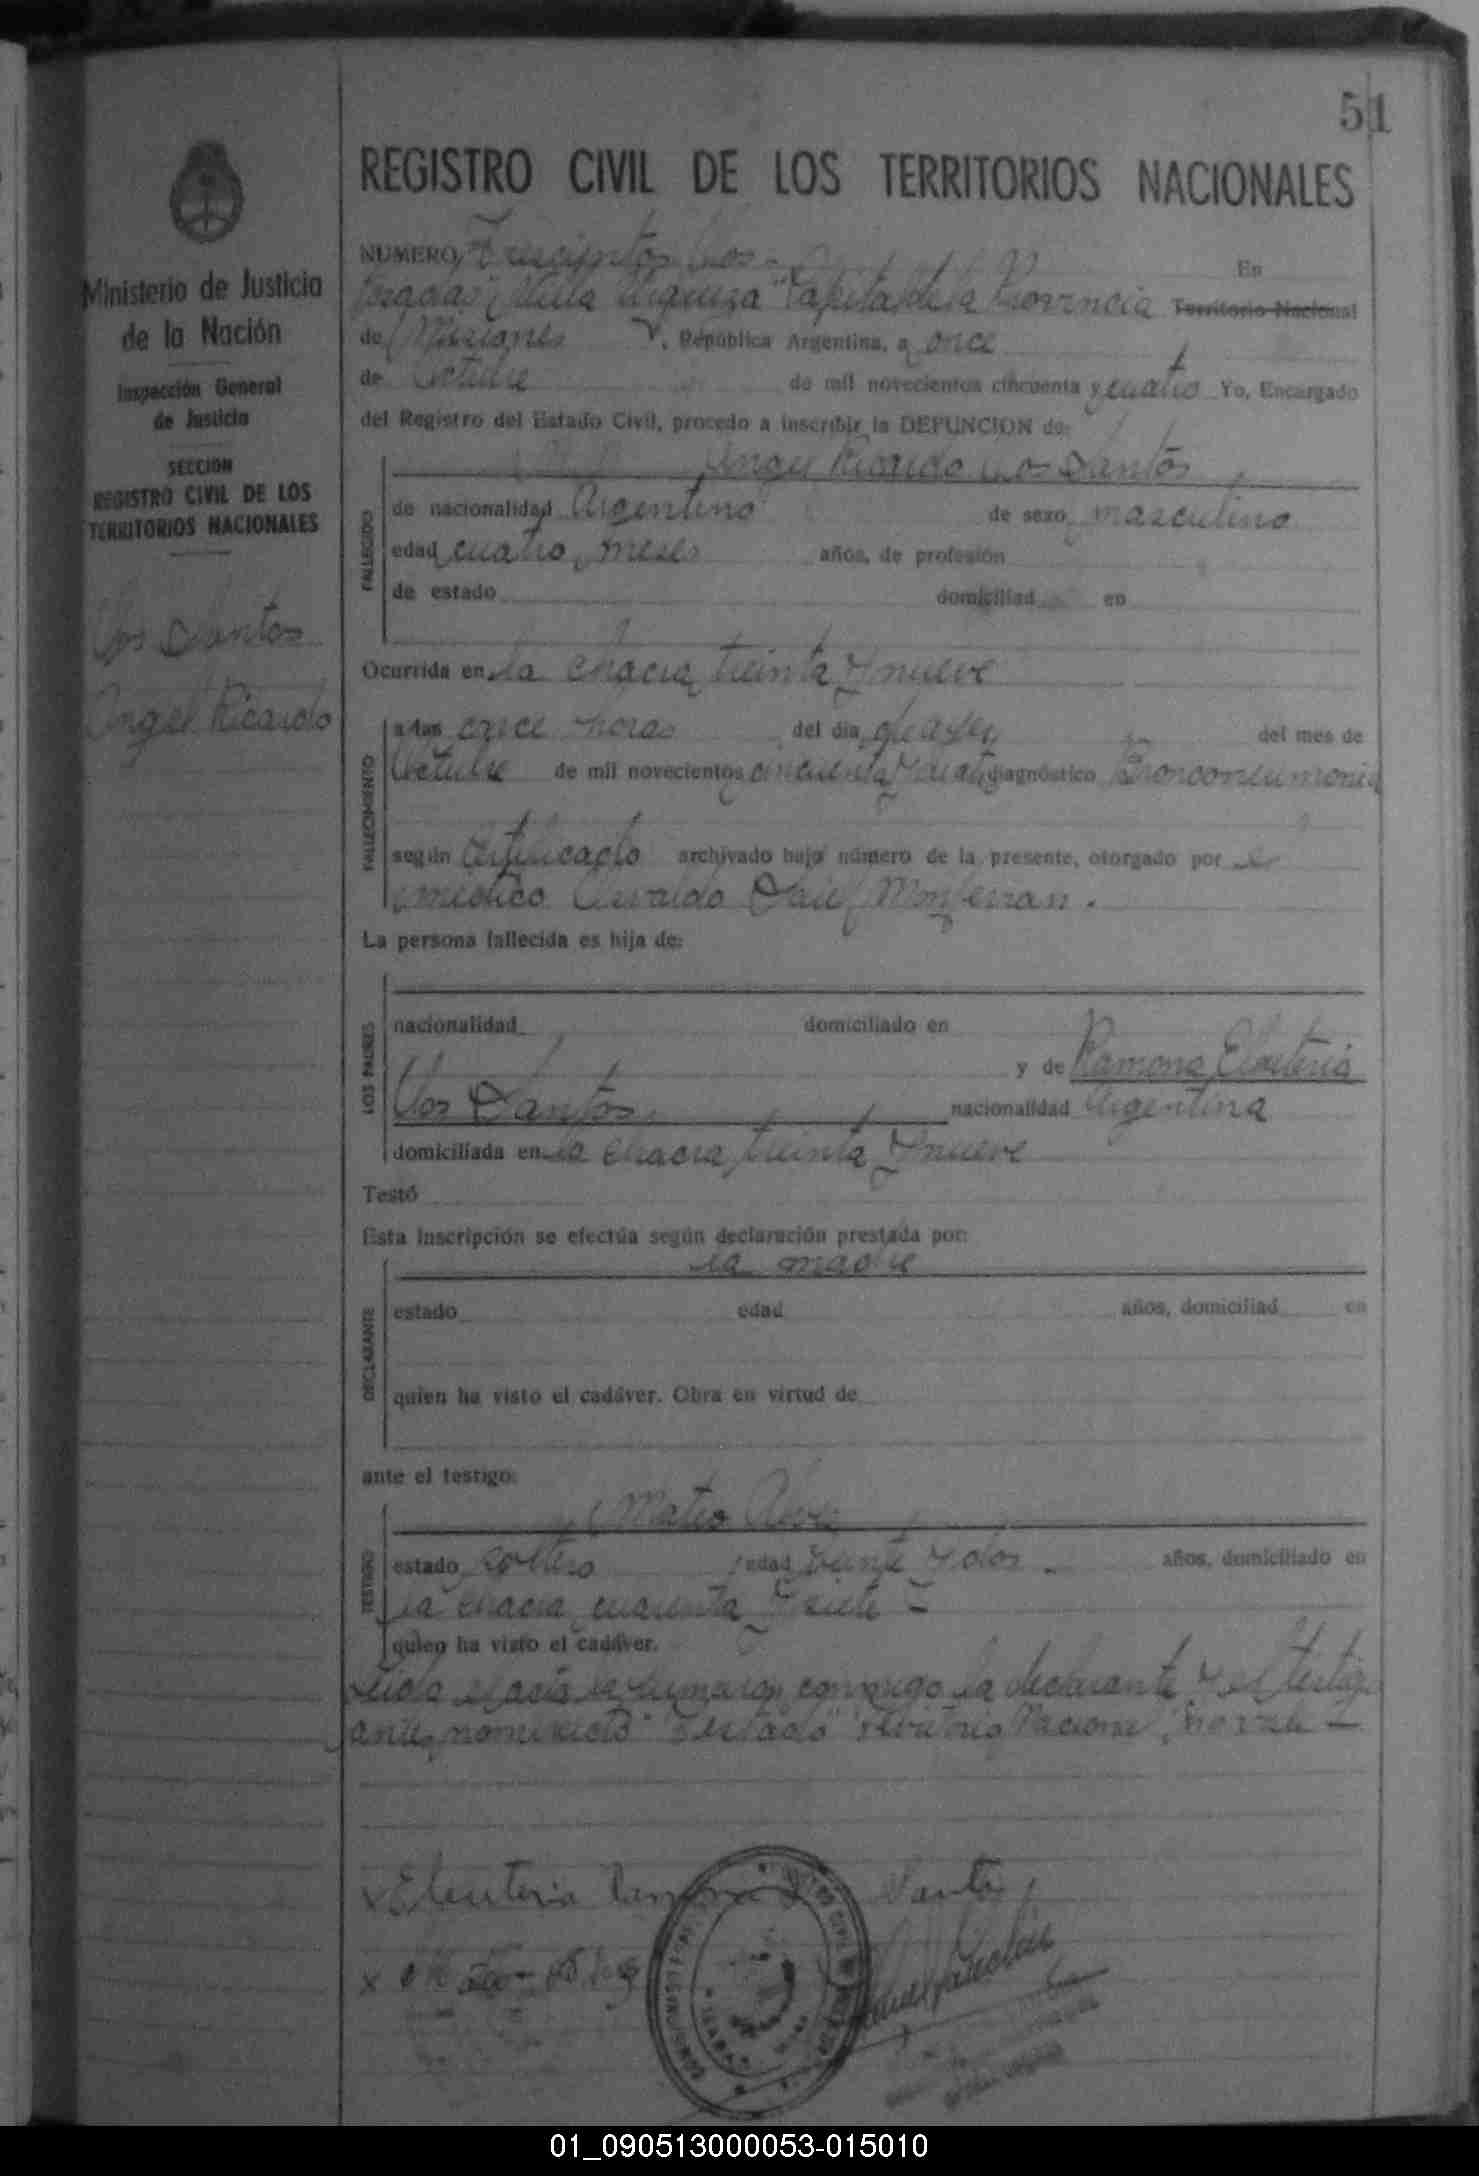 51
REGISTRO CIVIL DE LOS TERRITORIOS NACIONALES
Ministerio de Justicia
de la Nación
Inspección General
de Justicia
SECCION
REGISTRO CIVIL DE LOS
TERRITORIOS NACIONALES
Dos Santos
Angel Ricardo
NUMERO Trescientos Dos.- En
Posadas "Villa Urquiza" Capital de la Provincia Territorio Nacional
de Misiones, República Argentina, a once
de Octubre de mil novecientos cincuenta y cuatro Yo, Encargado
del Registro del Estado Civil, procedo a inscribir la DEFUNCION de:
Angel Ricardo Dos Santos
FALLECIDO
de nacionalidad Argentino de sexo masculino
edad cuatro meses años, de profesión
de estado domiciliad en
Ocurrida en la chacra treinta y nueve
FALLECIMIENTO
a las once horas del día de ayer del mes de
Octubre de mil novecientos cincuenta y cuatro diagnóstico Bronconeumonia
según Certificado archivado bajo número de la presente, otorgado por el
médico Osvaldo Monferran.
La persona fallecida es hija de:
LOS PADRES
nacionalidad domiciliado en
y de Ramona Eleuteria
Dos Santos, nacionalidad Argentina
domiciliada en la chacra treinta y nueve
Testó
Esta inscripción se efectúa según declaración prestada por:
la madre
DECLARANTE
estado edad años, domiciliad en
quien ha visto el cadáver. Obra en virtud de
ante el testigo:
Mateo
TESTIGO
estado soltero edad veinte y dos - años, domiciliado en
la chacra cuarenta y siete -
quien ha visto el cadáver.
Leida el acta la firmaron conmigo la declarante y el testigo
antes nominado "Testado" Territorio Nacional, no vale -
x Eleuteria Ramona D Santo
x
01_090513000053-015010